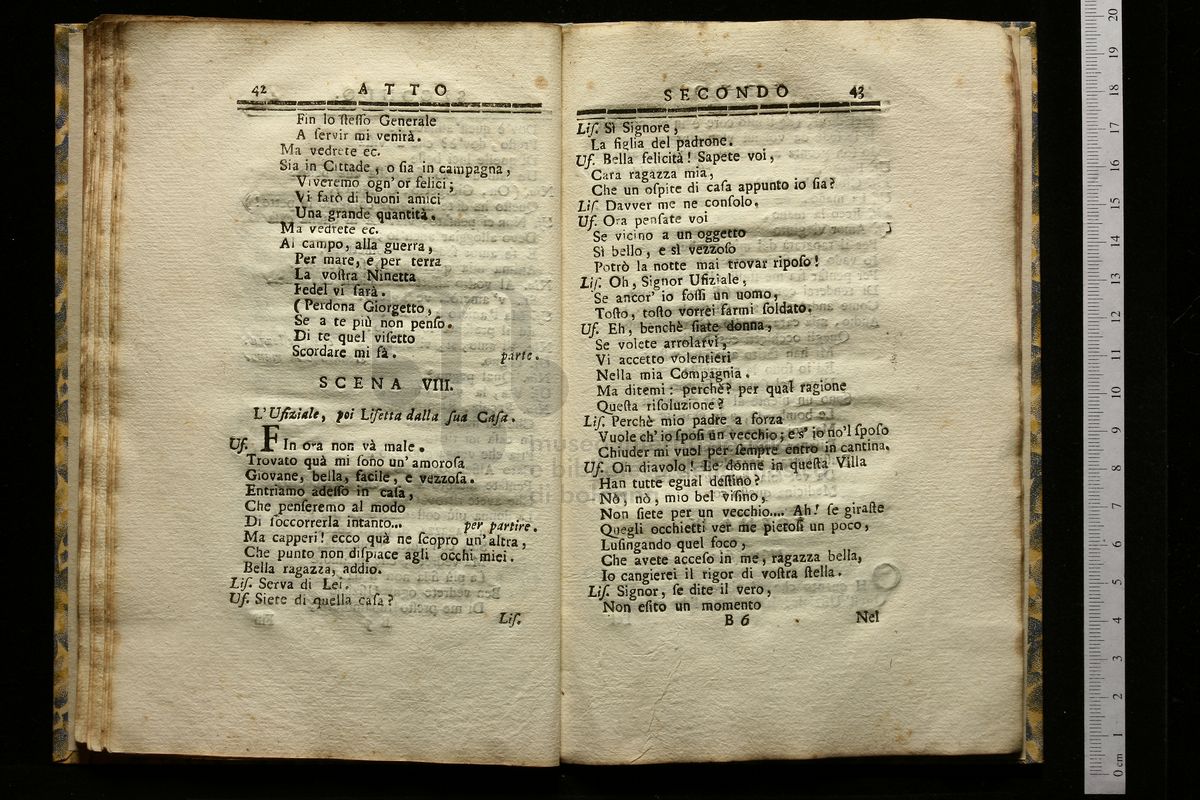 42 ATTO
Fin lo ſteſſo Generale
A ſervir mi venirà.
Ma vedrete ec.
Sia in Cittade, o ſia in campagna,
Viveremo ogn'or felici;
Vi farò di buoni amici
Una grande quantità.
Ma vedrete ec.
Al campo, alla guerra,
Per mare, e per terra
La voſtra Ninetta
Fedel vi ſarà.
(Perdona Giorgetto,
Se a te più non penſo.
Di te quel viſetto
Scordare mi fà. parte.
SCENA VIII.
L'Ufiziale, poi Liſetta dalla ſua Caſa.
Uf. FIn ora non và male.
Trovato quà mi ſono un' amoroſa
Giovane, bella, facile, e vezzoſa.
Entriamo adeſſo in caſa,
Che penſeremo al modo
Di ſoccorrerla intanto... per partire.
Ma capperi! ecco quà ne ſcopro un'altra,
Che punto non diſpiace agli occhi miei.
Bella ragazza, addio.
Liſ. Serva di Lei.
Uf. Siete di quella caſa?
Liſ.
SECONDO 43
Liſ. Sì Signore,
La figlia del padrone.
Uf. Bella felicità! Sapete voi,
Cara ragazza mia,
Che un oſpite di caſa appunto io ſia?
Liſ. Davver me ne conſolo.
Uf. Ora penſate voi
Se vicino a un oggetto
Sì bello, e sì vezzoſo
Potrò la notte mai trovar ripoſo!
Liſ. Oh, Signor Ufiziale,
Se ancor' io foſſi un uomo,
Toſto, toſto vorrei farmi ſoldato.
Uf. Eh, benchè ſiate donna,
Se volete arrolarvi,
Vi accetto volentieri
Nella mia Compagnia.
Ma ditemi: perchè? per qual ragione
Queſta riſoluzione?
Liſ. Perchè mio padre a forza
Vuole ch'io ſpoſi un vecchio; e s' io no'l ſpoſo
Chiuder mi vuol per ſempre entro in cantina.
Uf. Oh diavolo! Le donne in queſta Villa
Han tutte egual deſtino?
Nò, nò, mio bel viſino,
Non ſiete per un vecchio.... Ah! ſe giraſte
Quegli occhietti ver me pietoſi un poco,
Luſingando quel foco,
Che avete acceſo in me, ragazza bella,
Io cangierei il rigor di voſtra ſtella.
Liſ. Signor, ſe dite il vero,
Non eſito un momento
B 6 Nel